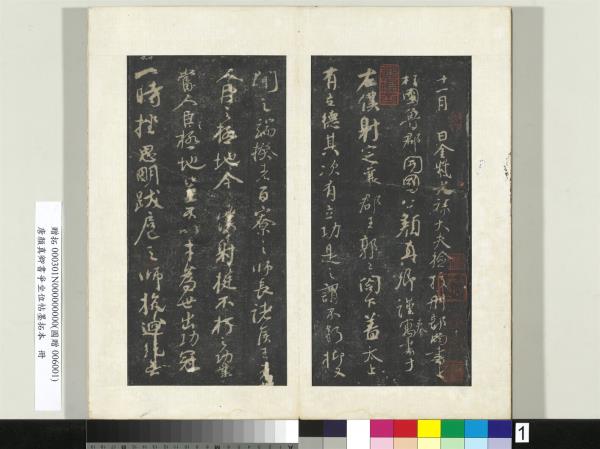 十一月 日金紫光祿大夫檢挍刑部尚書上
柱國魯郡開國公顏真卿謹奉書于
右僕射定襄郡王郭公閤下蓋太上
有立德其次有立功是之謂不朽抑又
聞之端揆者百寮之師長諸侯王者
人臣之極地今僕射挺不朽之功業
當人臣極地豈不以才為世出功冠
一時挫思明跋扈之師抗迴紇無
贈拓 000301N000000000(國贈 006001)
唐顏真卿書爭坐位帖墨拓本 冊
1